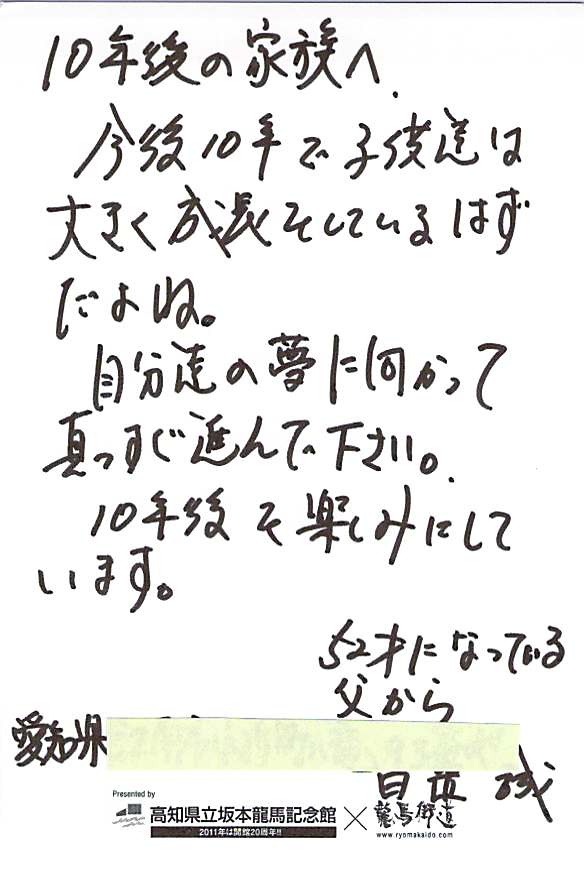 10年後の家族へ.
今後10年で子供達は
大きく成長をしているはず
だよね。
自分達の夢に向かって
真っすぐ進んで下さい。
10年後を楽しみにして
います。
52才になっている
父から
愛知県
Presented by
高知県立坂本龍馬記念館
2011年は開館20周年!!
×
龍馬街道
www.ryomakaido.com